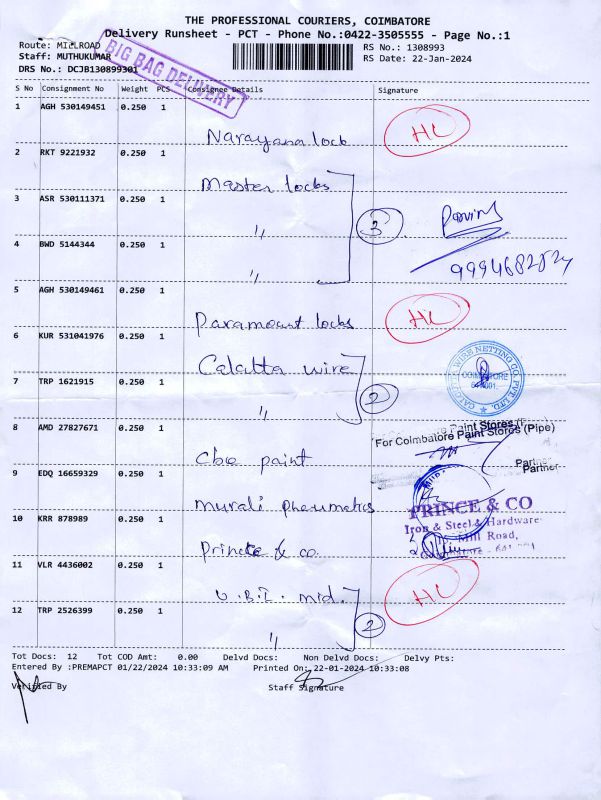 THE PROFESSIONAL COURIERS, COIMBATORE
Delivery Runsheet - PCT - Phone No.:0422-3505555 - Page No.:1
Route: MILLROAD
RS No.: 1308993
Staff: MUTHUKUMAR
RS Date: 22-Jan-2024
DRS No.: DCJB130899301
BIG BAG DELIVERY
S No Consignment No Weight PCS Consignee Details Signature
1 AGH 530149451 0.250 1 Narayana lock HL
2 RKT 9221932 0.250 1 Master locks
3 ASR 530111371 0.250 1 〃 3
4 BWD 5144344 0.250 1 〃
5 AGH 530149461 0.250 1 Paramount locks HL
6 KUR 531041976 0.250 1 Calcutta wire
7 TRP 1621915 0.250 1 〃 2
CALCUTTA WIRE NETTING CO. PVT. LTD.
COIMBATORE
8 AMD 27827671 0.250 1 Cbe paint
Paint Stores
For Coimbatore Paint Stores (Pipe)
Partner
Partner
9 EDQ 16659329 0.250 1 Murali Pneumatics
10 KRR 878989 0.250 1 Prince & co
PRINCE & CO
Iron & Steel & Hardware
Mill Road,
11 VLR 4436002 0.250 1 U.B.I. mid. HL
12 TRP 2526399 0.250 1 〃 2
Tot Docs: 12 Tot COD Amt: 0.00 Delvd Docs: Non Delvd Docs: Delvy Pts:
Entered By :PREMAPCT 01/22/2024 10:33:09 AM Printed On: 22-01-2024 10:33:08
Verified By Staff Signature